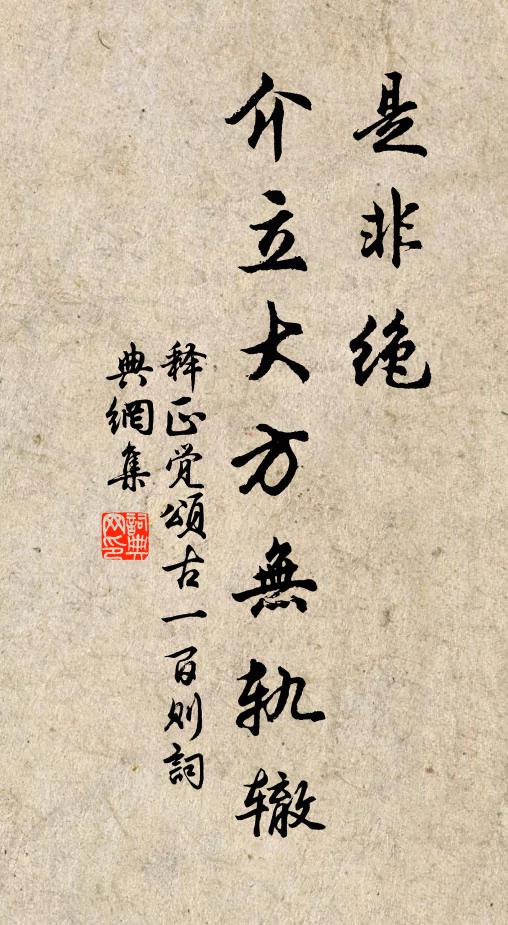 是非绝
介立大方無轨辙
释正觉頌古一百则詞
典網集
詞典网印